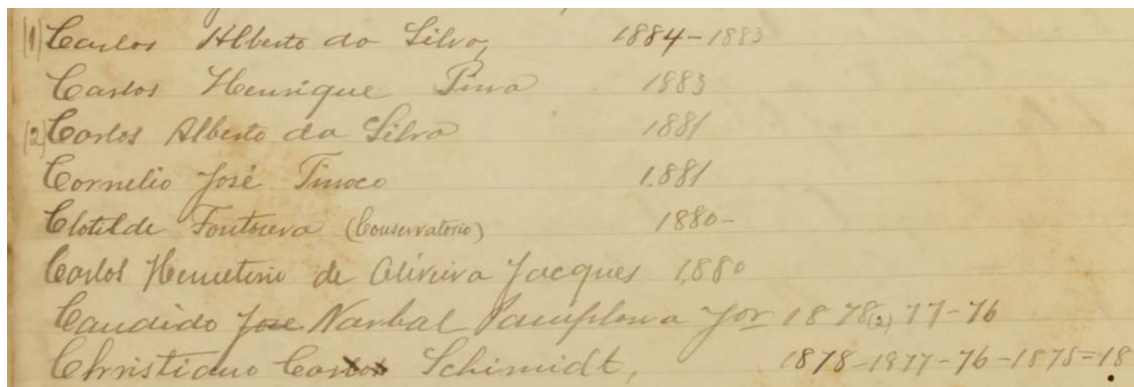 (1) Carlos Alberto da Silva, 1884-1883
Carlos Henrique Pinna 1883
(2) Carlos Alberto da Silva 1881
Cornelio José Tinoco 1.881
Clotilde Fontoura (Conservatorio) 1880-
Carlos Hemeterio de Oliveira Jacques 1.880
Candido José Narbal Pamplona Jor 1878(2) 77-76
Christiano Carlos Schimidt, 1878-1877-76-1875=18